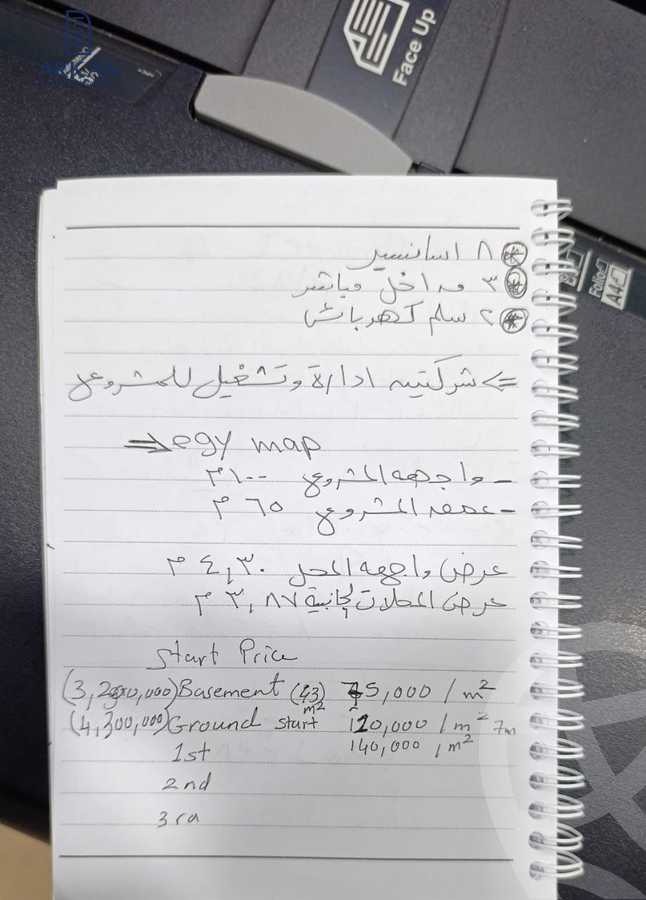 Face Up
Folio
A4
٨ اسانسير
٣ مداخل مباشر
٢ سلم كهربائى
<= شركتيه ادارة وتشغيل للمشروع
=> egy map
- واجهه المشروع ١٠٠ م
- عمق المشروع ٦٥ م
عرض واجهه المحل ٤,٣٠ م
عرض المحلات الجانبية ٣,٨٧ م
start Price
Basement (43) m² 75,000 / m²
(4,300,000) Ground start 120,000 / m² 7m
1st 140,000 / m²
2nd
3rd